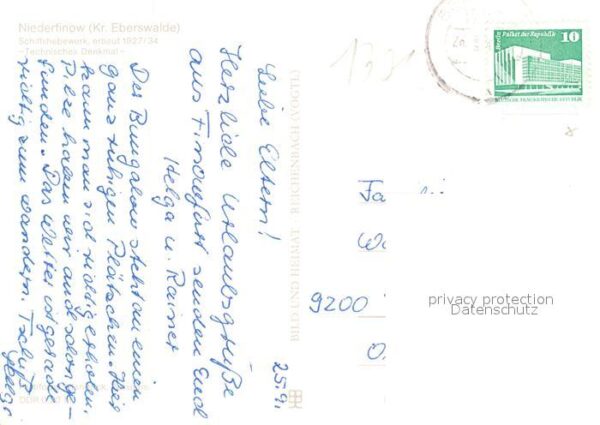 Niederfinow (Kr. Eberswalde)
Schiffshebewerk, erbaut 1927/34
- Technisches Denkmal -
Liebe Eltern!
Herzliche Urlaubsgrüße
aus Finowfurt senden Euch
Helga u. Rainer
Der Bungalow steht an einem
ganz ruhigen Plätzchen. Hier
kann man sich richtig erholen.
Pilze haben wir auch schon ge-
funden. Das Wetter ist gerade
richtig zum wandern. Tschüß
Helga
BILD UND HEIMAT REICHENBACH (VOGTL)
Berlin Palast der Republik
10
DEUTSCHE DEMOKRATISCHE REPUBLIK
Fa
9200
privacy protection
Datenschutz